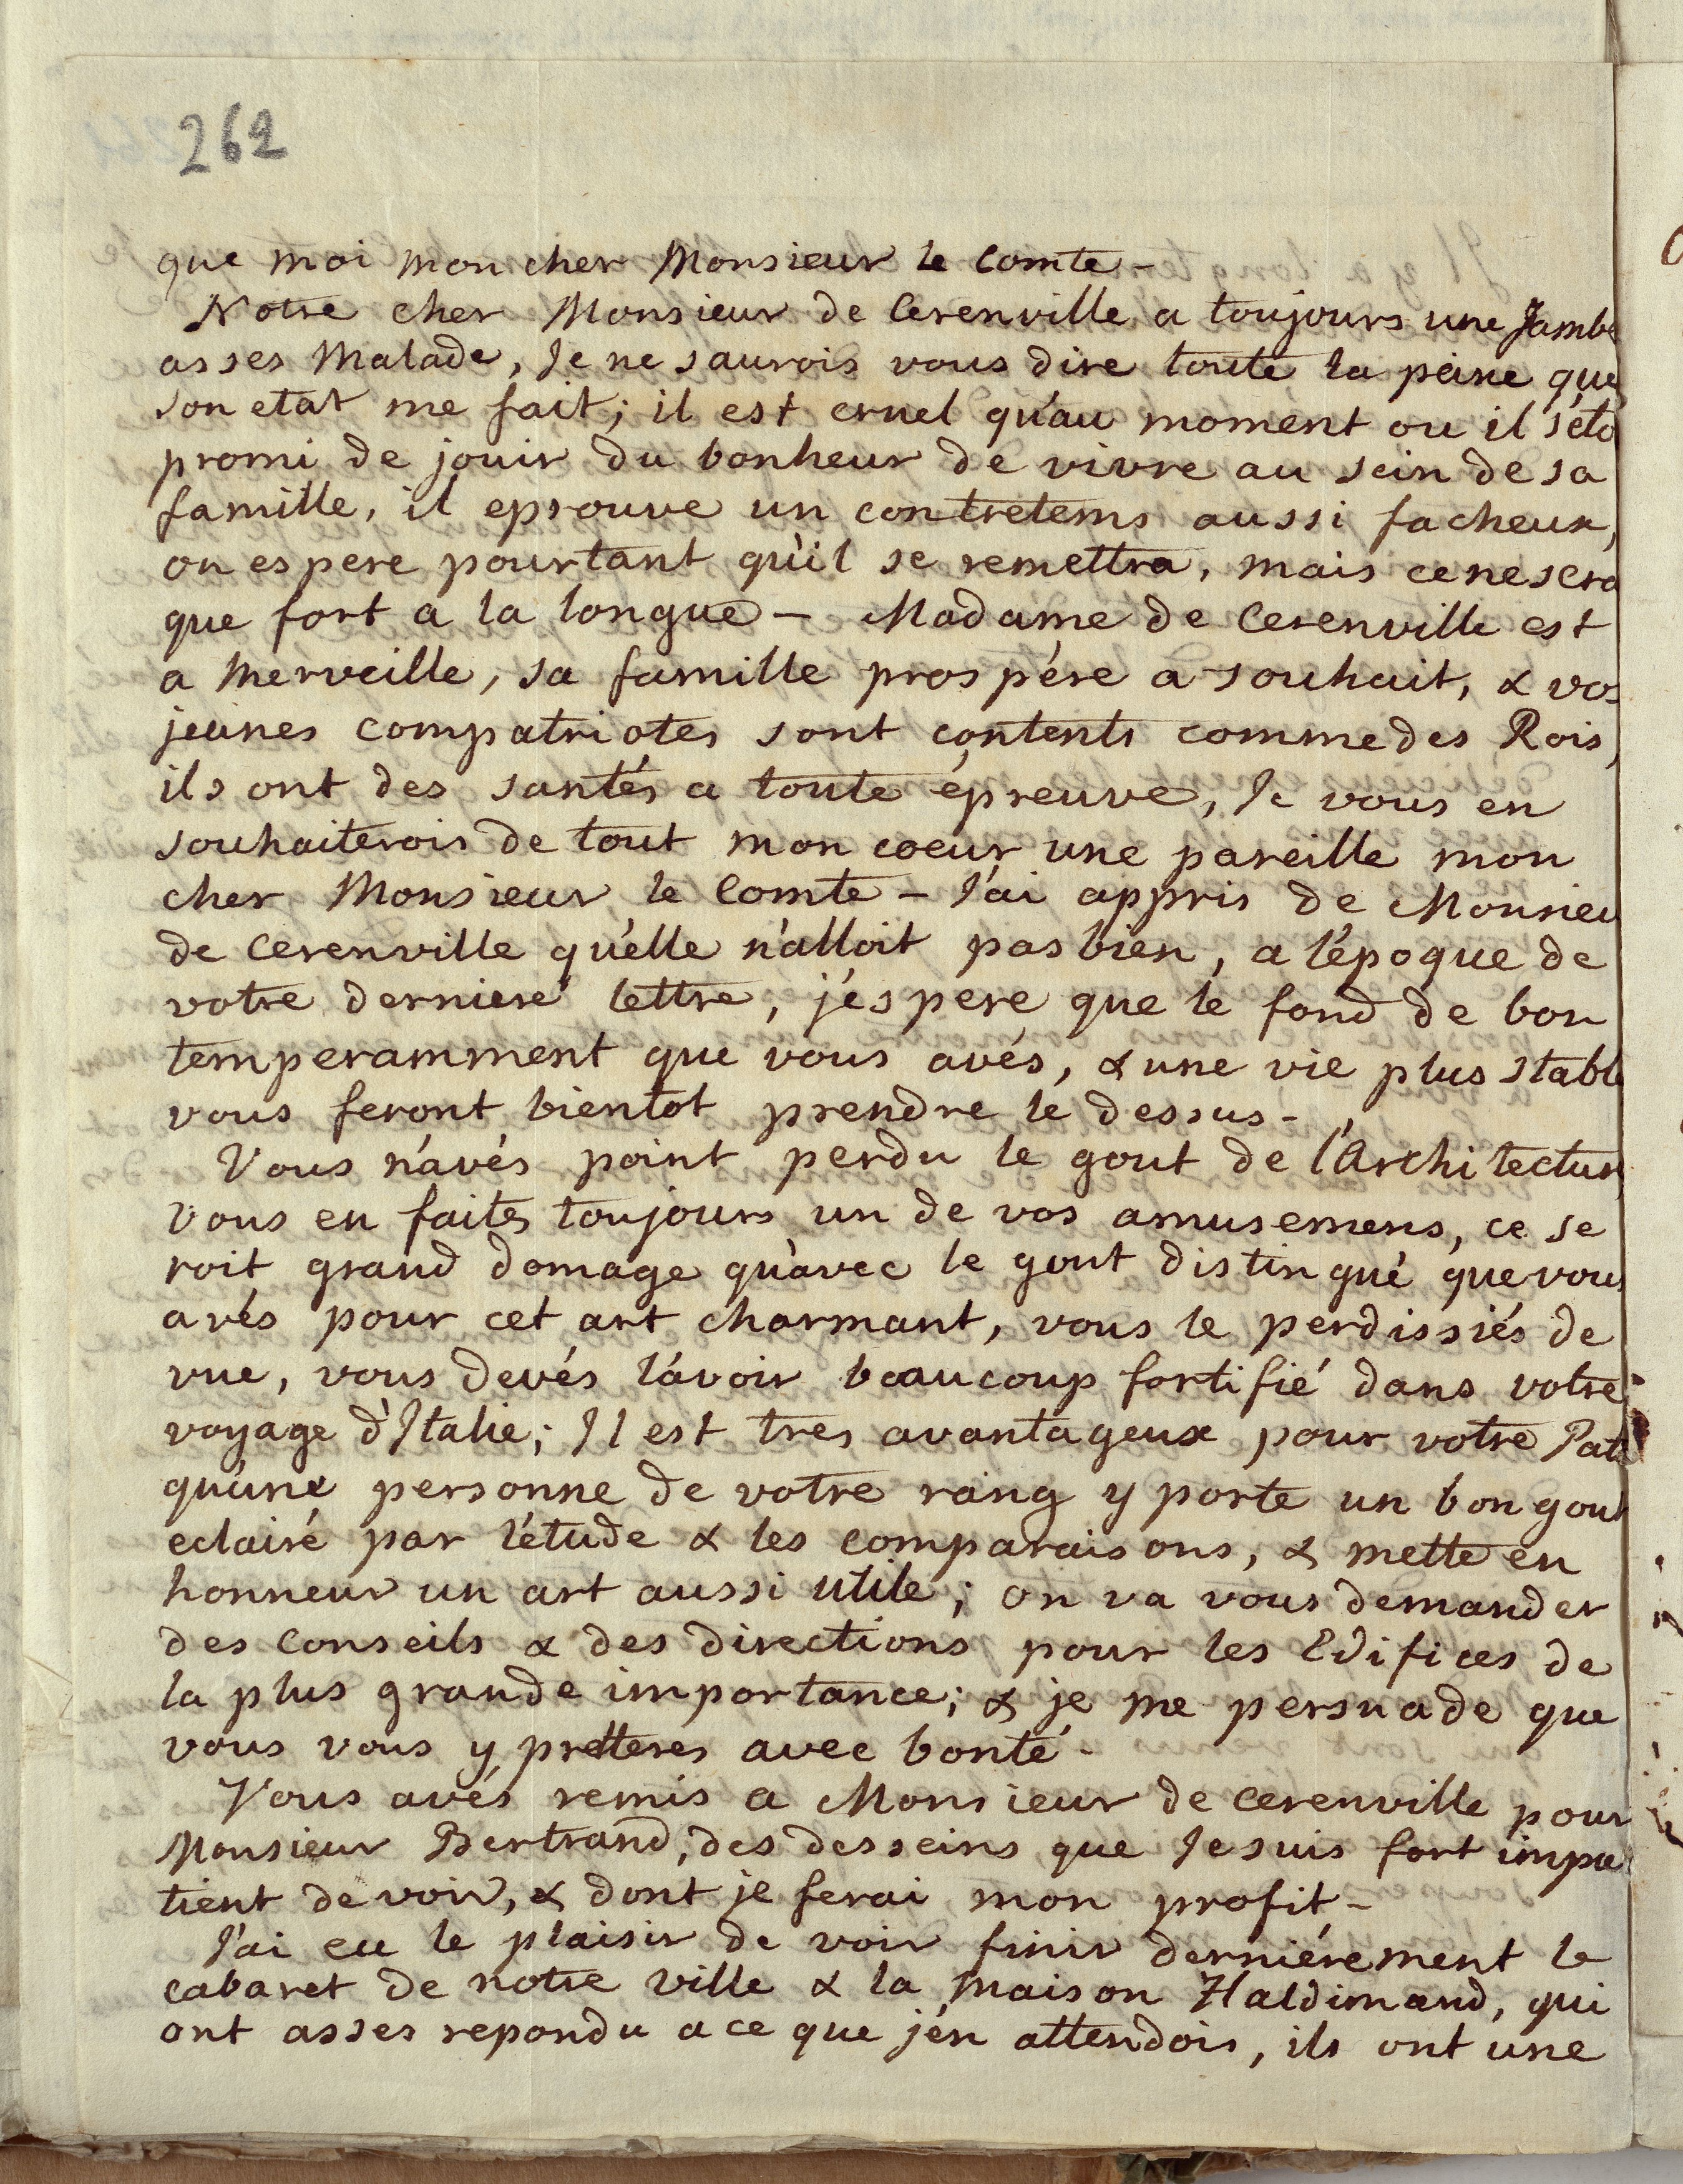 262
que moi mon cher Monsieur le Comte -
Notre cher Monsieur de Cerenville a toujours une Jambe
asses Malade, Je ne saurois vous dire toute la peine que
son etat me fait; il est cruel qu'au moment ou il s'éto
promi de jouir du bonheur de vivre au sein de sa
famille, il eprouve un contretems aussi facheux,
on espere pourtant qu'il se remettra, mais ce ne sera
que fort a la longue - Madame de Cerenville est
a Merveille, sa famille prospére a souhait, & vos
jeunes compatriotes sont contents comme des Rois,
ils ont des santés a toute épreuve, Je vous en
souhaiterois de tout mon coeur une pareille mon
cher Monsieur le Comte - J'ai appris de Monsieu
de Cerenville qu'elle n'alloit pas bien, a l'époque de
votre derniere lettre, j'éspere que le fond de bon
temperamment que vous avés, & une vie plus stable
vous feront bientot prendre le dessus -
Vous n'avés point perdu le gout de l'Architectur
vous en faites toujours un de vos amusemens, ce se
roit grand domage qu'avec le gout distingué que vous
avés pour cet art charmant, vous le perdissiés de
vue, vous devés l'avoir beaucoup fortifié dans votre
voyage d'Italie; Il est tres avantageux pour votre Pat
qu'une personne de votre rang y porte un bon gout
eclairé par l'étude & les comparaisons, & mette en
honneur un art aussi utile; on va vous demander
des Conseils & des directions pour les Edifices de
la plus grande importance; & je me persuade que
vous vous y pretteres avec bonté -
Vous avés remis a Monsieur de Cerenville pour
Monsieur Bertrand, des desseins que Je suis fort impa
tient de voir, & dont je ferai mon profit -
J'ai eu le plaisir de voir finir derniérement le
cabaret de notre ville & la Maison Haldimand, qui
ont asses repondu a ce que j'én attendois, ils ont une